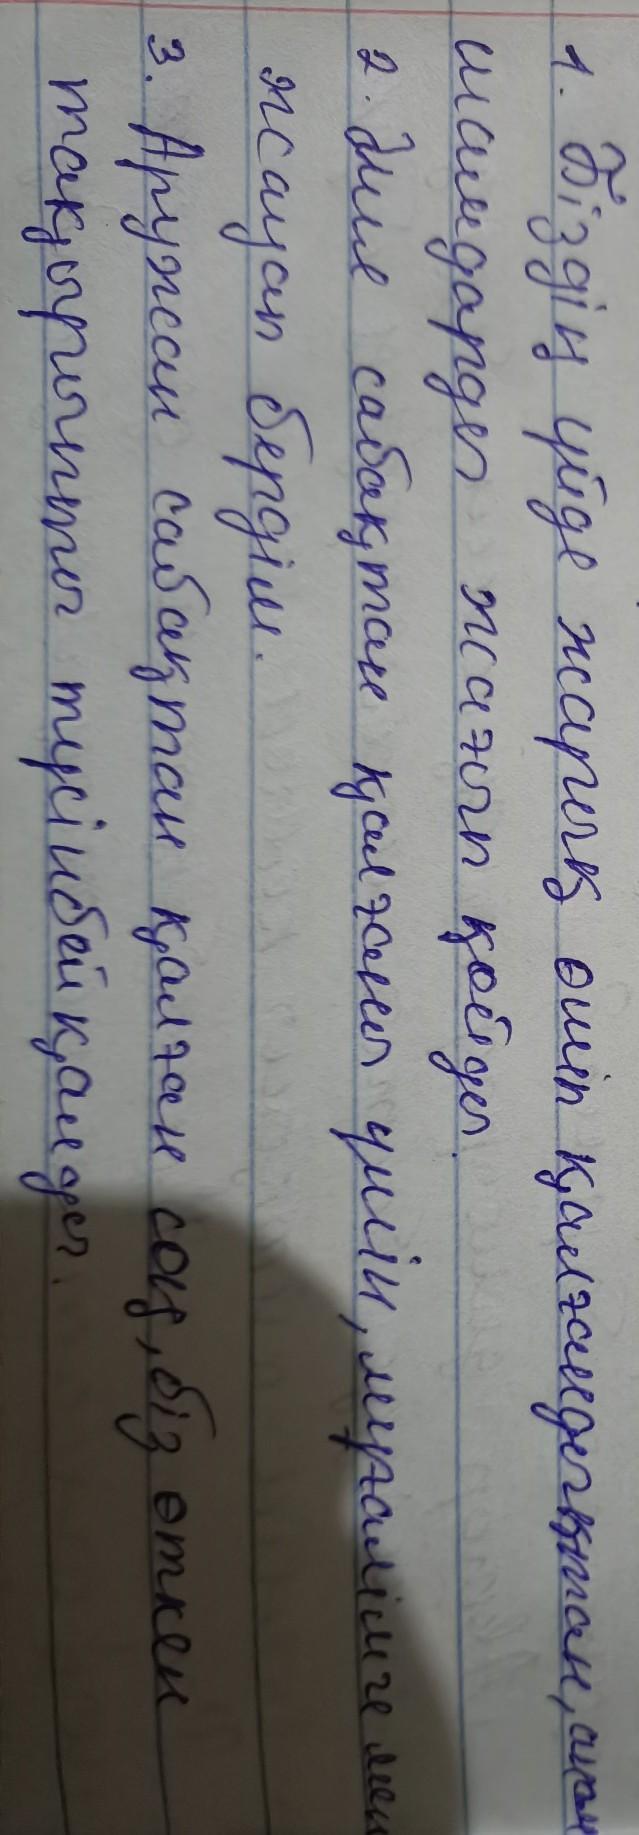 1. Біздің үйде жарық өшіп қалғандықтан,
шамдарды жағып қойды.
2. Әлия сабақтан қалғаны үшін, мұғалімге мен
жауап бердім.
3. Аружан сабақтан қалған соң, біз өткен
тақырыпты түсінбей қалды.